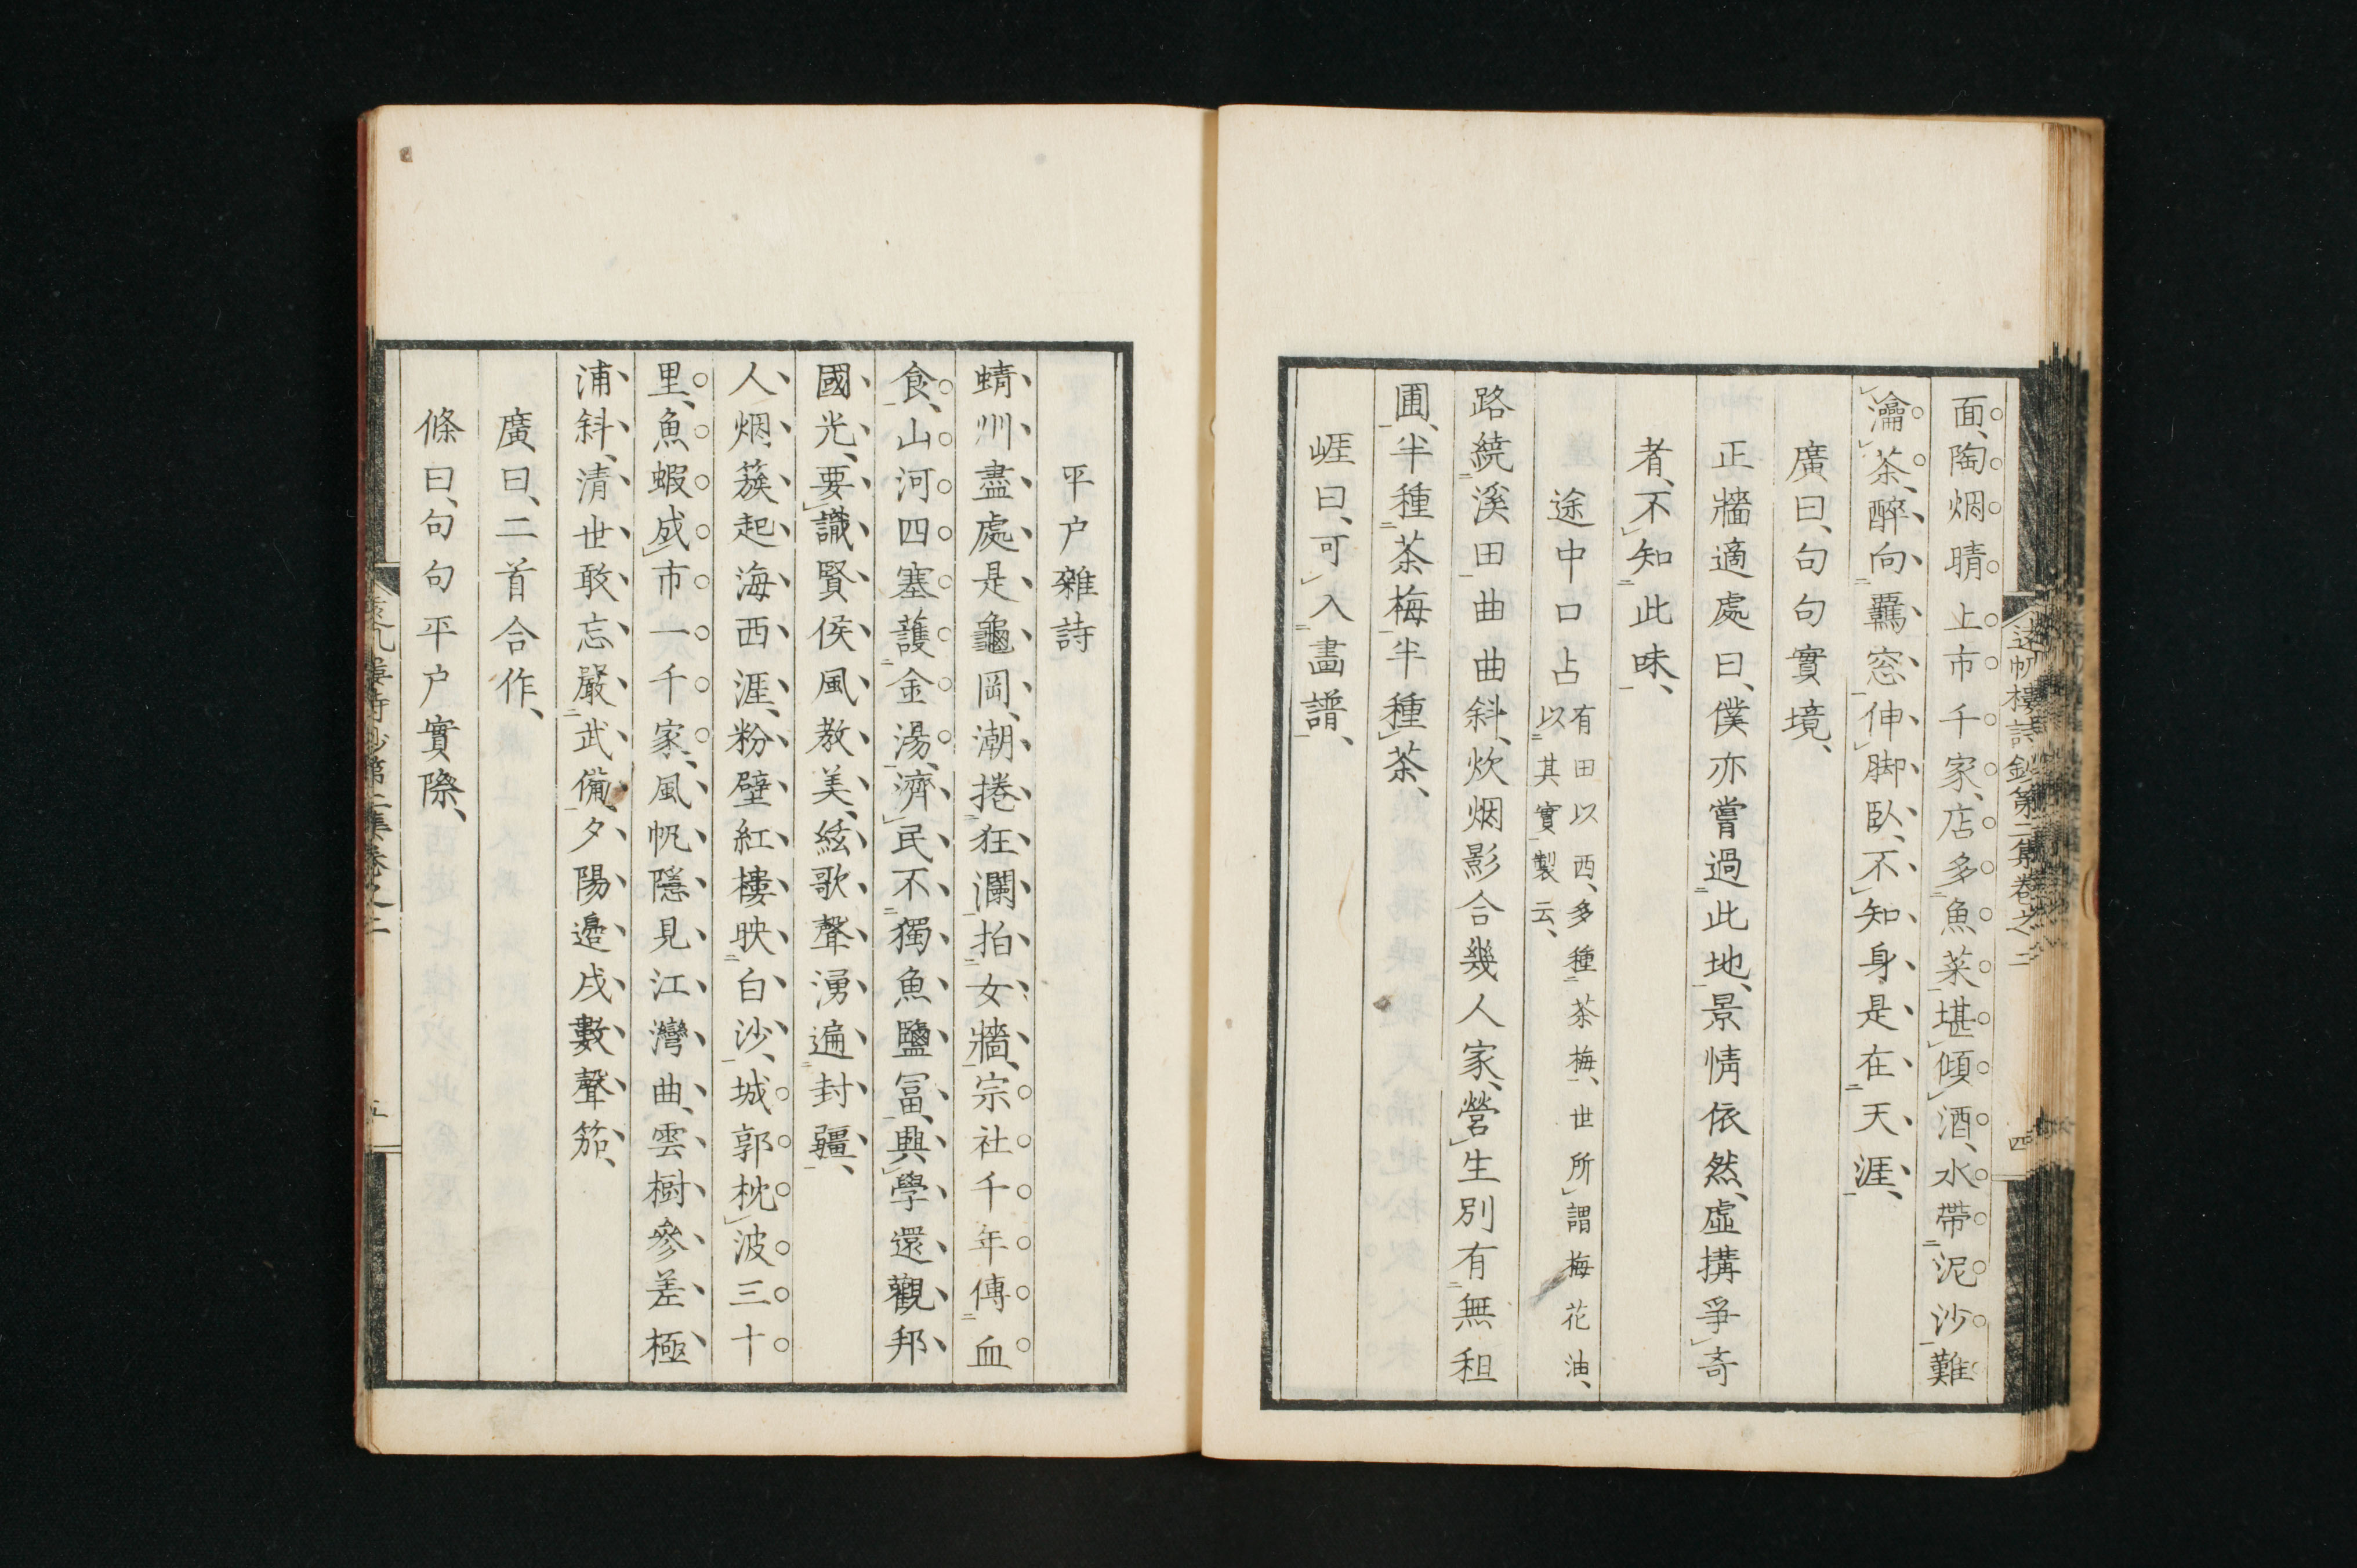 遠帆樓詩鈔第二集卷之二 四
面、陶烟晴上市千家、店多魚菜堪傾酒、水帶泥沙難
瀹茶、醉向羈窓伸脚臥、不知身是在天涯、
廣曰、句句實境、
正牆適處曰、僕亦嘗過此地、景情依然、虛搆爭奇
者、不知此味、
途中口占 有田以西、多種茶梅、世所謂梅花油、
以其實製云、
路繞溪田曲曲斜、炊烟影合幾人家、營生別有無租
圃、半種茶梅半種茶、
崕曰、可入畵譜、
平戶雜詩
蜻州盡處是龜岡、潮捲狂瀾拍女牆、宗社千年傳血
食、山河四塞護金湯、濟民不獨魚鹽冨、興學還觀邦
國光、要識賢侯風教美、絃歌聲湧遍封疆、
人烟簇起海西涯、粉壁紅樓映白沙、城郭枕波三十
里、魚蝦成市一千家、風帆隱見江灣曲、雲樹參差極
浦斜、清世敢忘嚴武備、夕陽邊戍數聲笳、
廣曰、二首合作、
條曰、句句平戶實際、